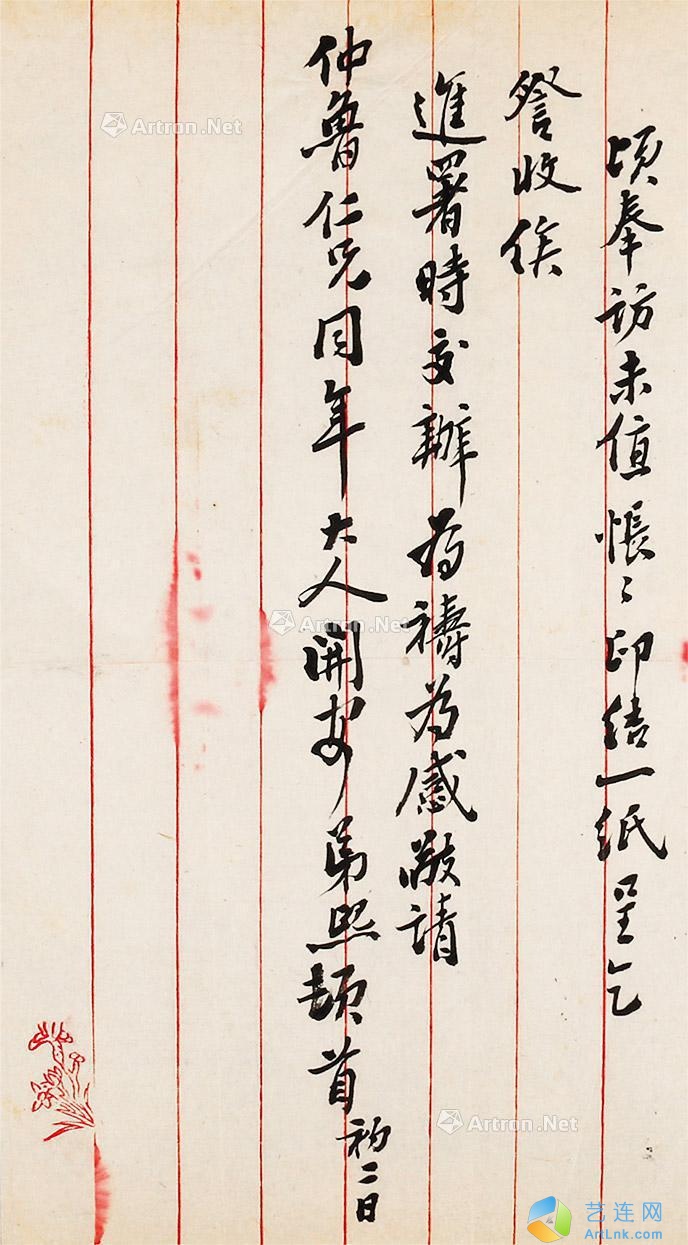 頃奉訪未值悵〻印結一紙呈乞
詧收俟
進署時交辦為禱為感敬請
仲魯仁兄同年大人開安 弟熙頓首 初二日
Artron.Net
Artron.Net
Artron.Net
艺连网
ArtLnk.com